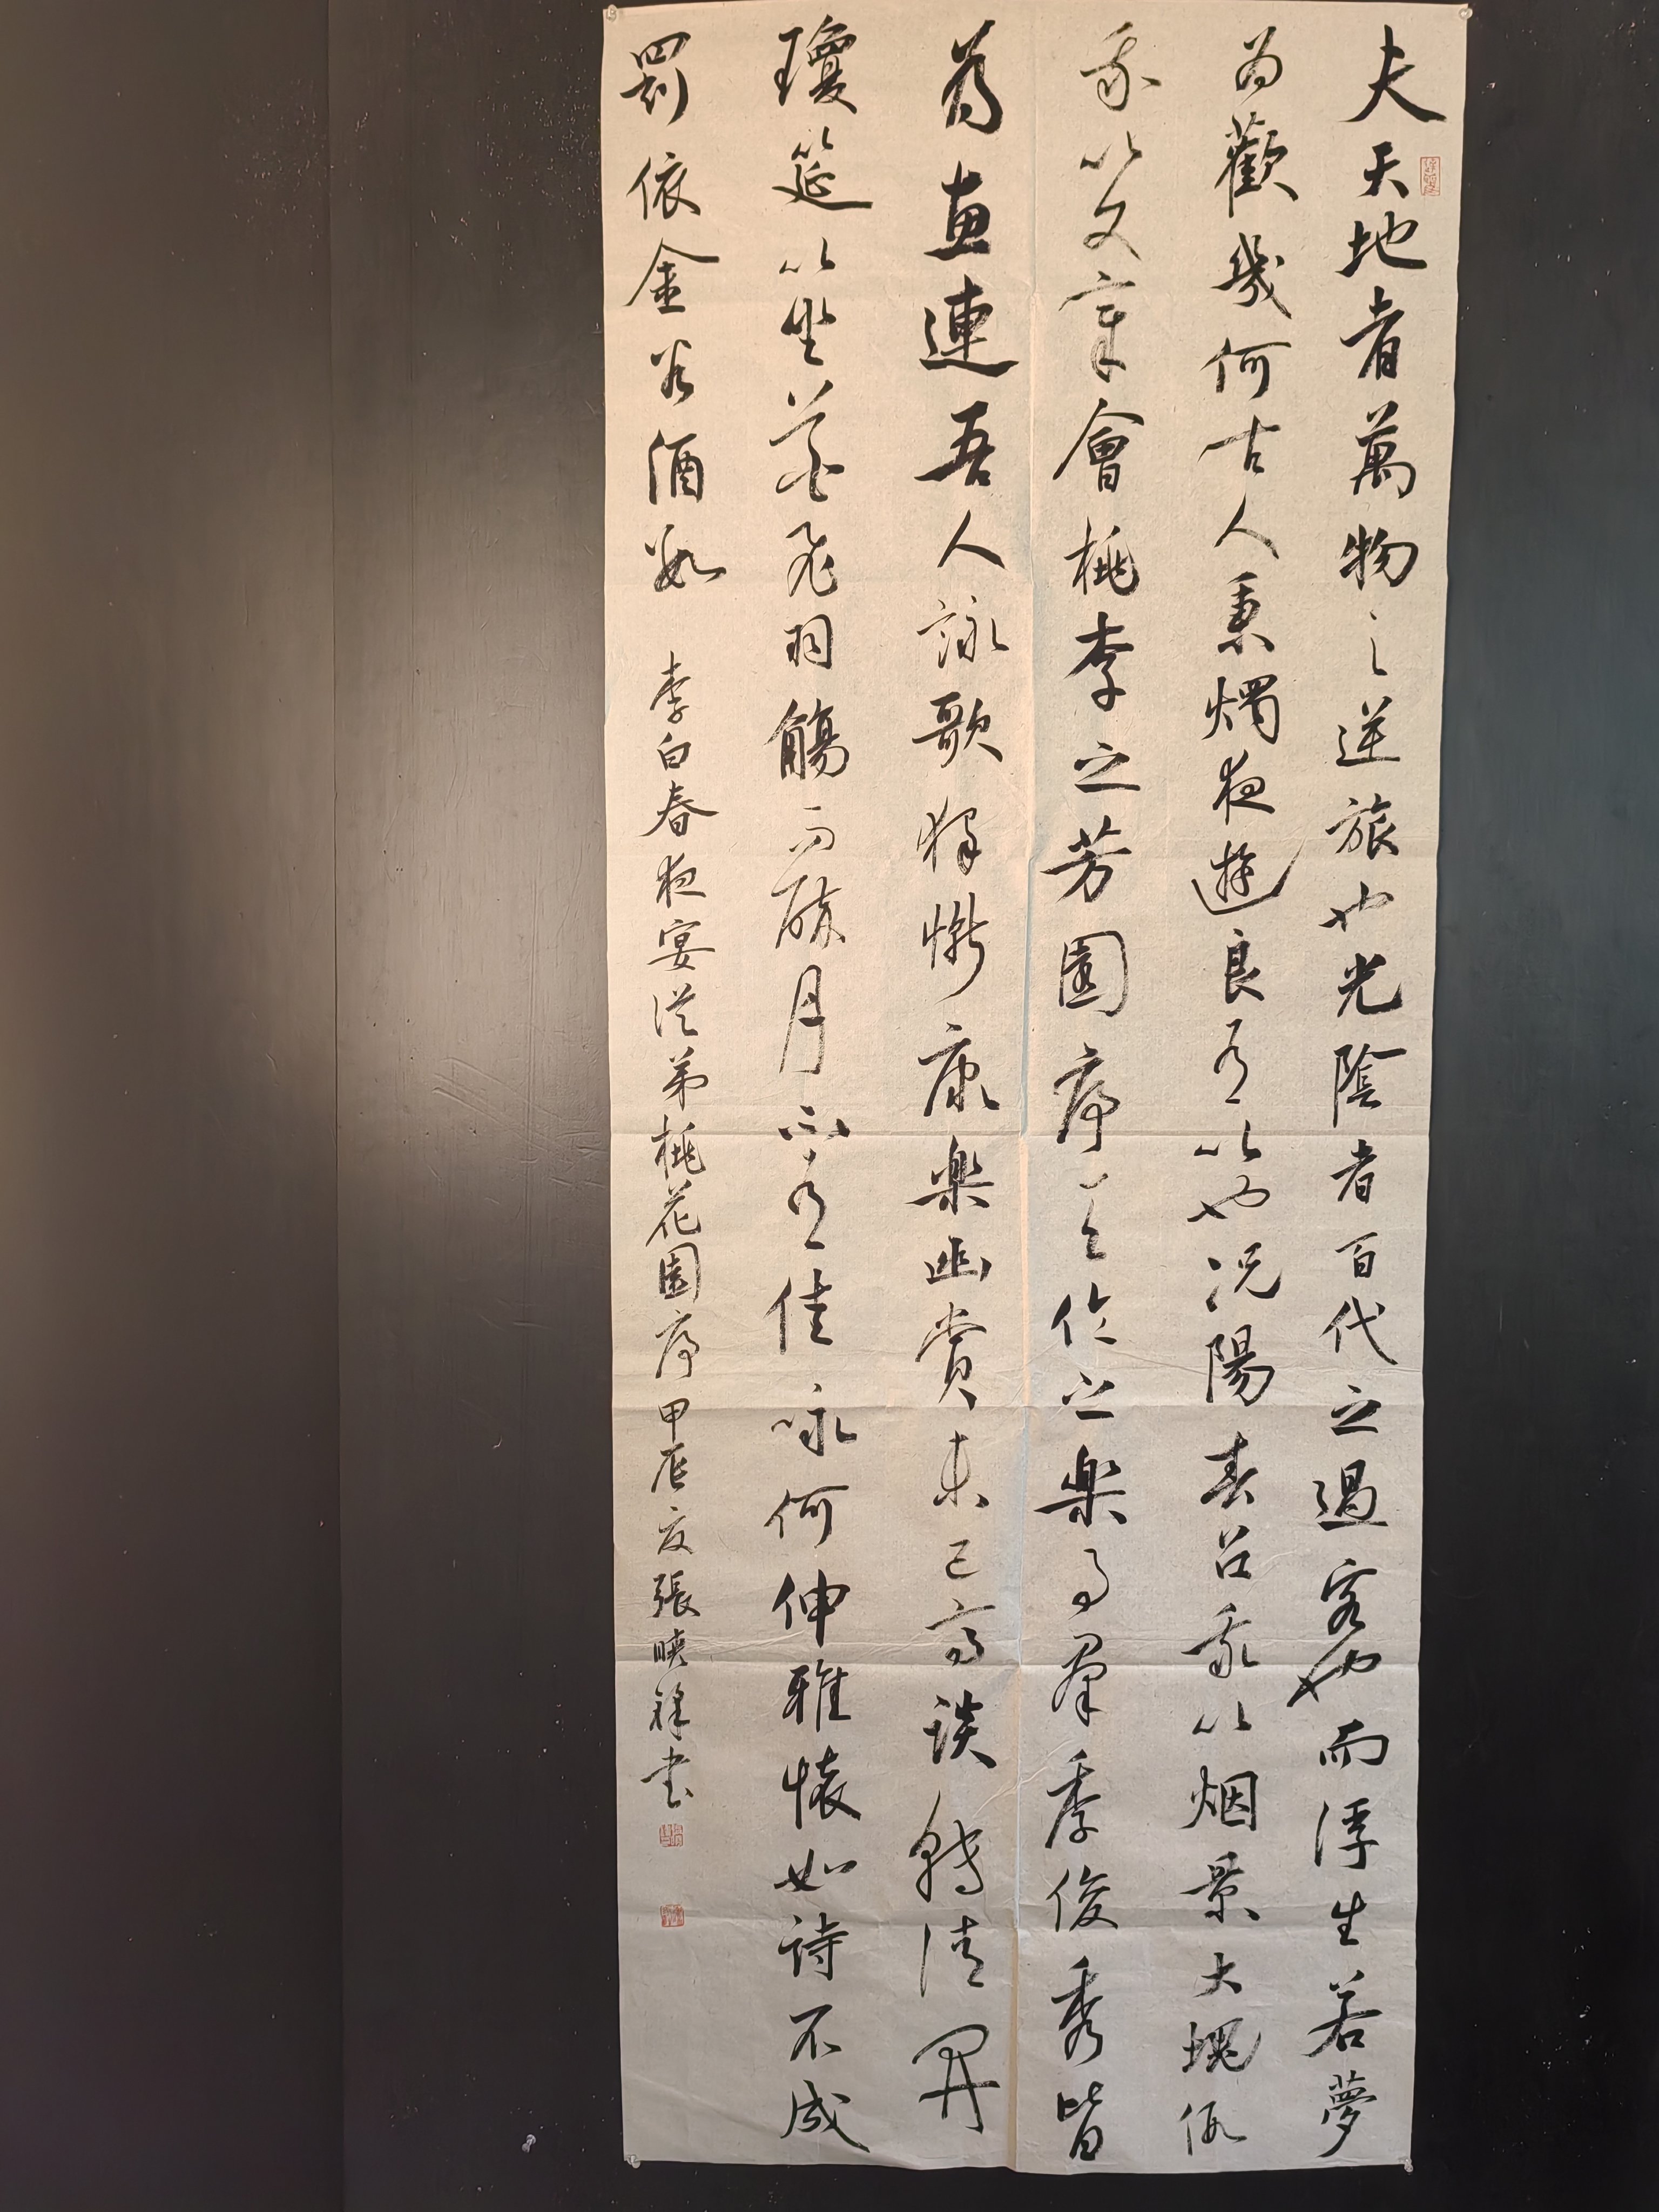 夫天地者萬物之逆旅也光陰者百代之過客也而浮生若夢
為歡幾何古人秉燭夜遊良有以也况陽春召我以烟景大塊假
我以文章會桃李之芳園序天倫之楽事羣季俊秀皆
為惠連吾人詠歌獨慚康楽幽賞未已高談轉清開
瓊筵以坐花飛羽觴而醉月不有佳咏何伸雅懷如詩不成
罰依金谷酒數 李白春夜宴從弟桃花園序甲辰夏張映書